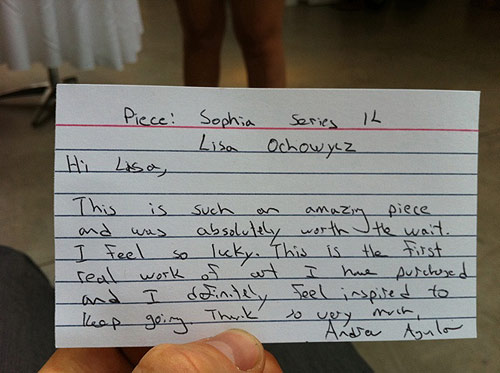 Piece: Sophia Series 1L
Lisa Ochowycz
Hi Lisa,
This is such an amazing piece
and was absolutely worth the wait.
I feel so lucky. This is the first
real work of art I have purchased
and I definitely feel inspired to
keep going. Thank so very much,
Andrea Aguilar